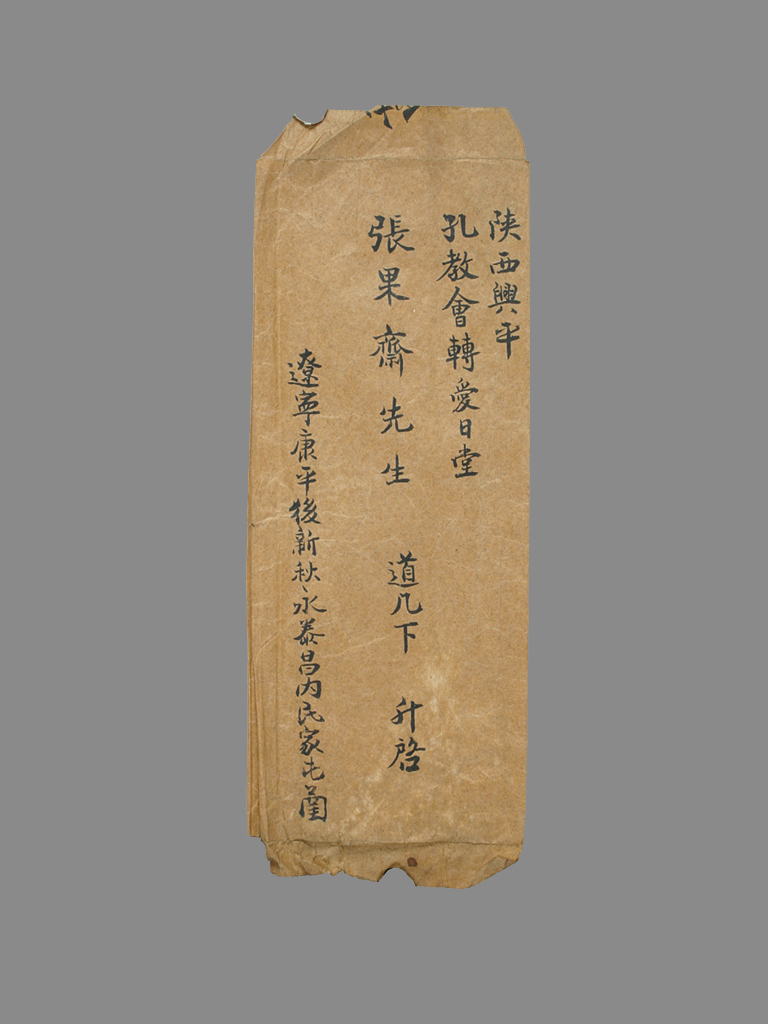 陝西興平
孔教會轉愛日堂
張果齋先生 道几下 升啓
遼寧康平後新秋永泰昌內民家屯